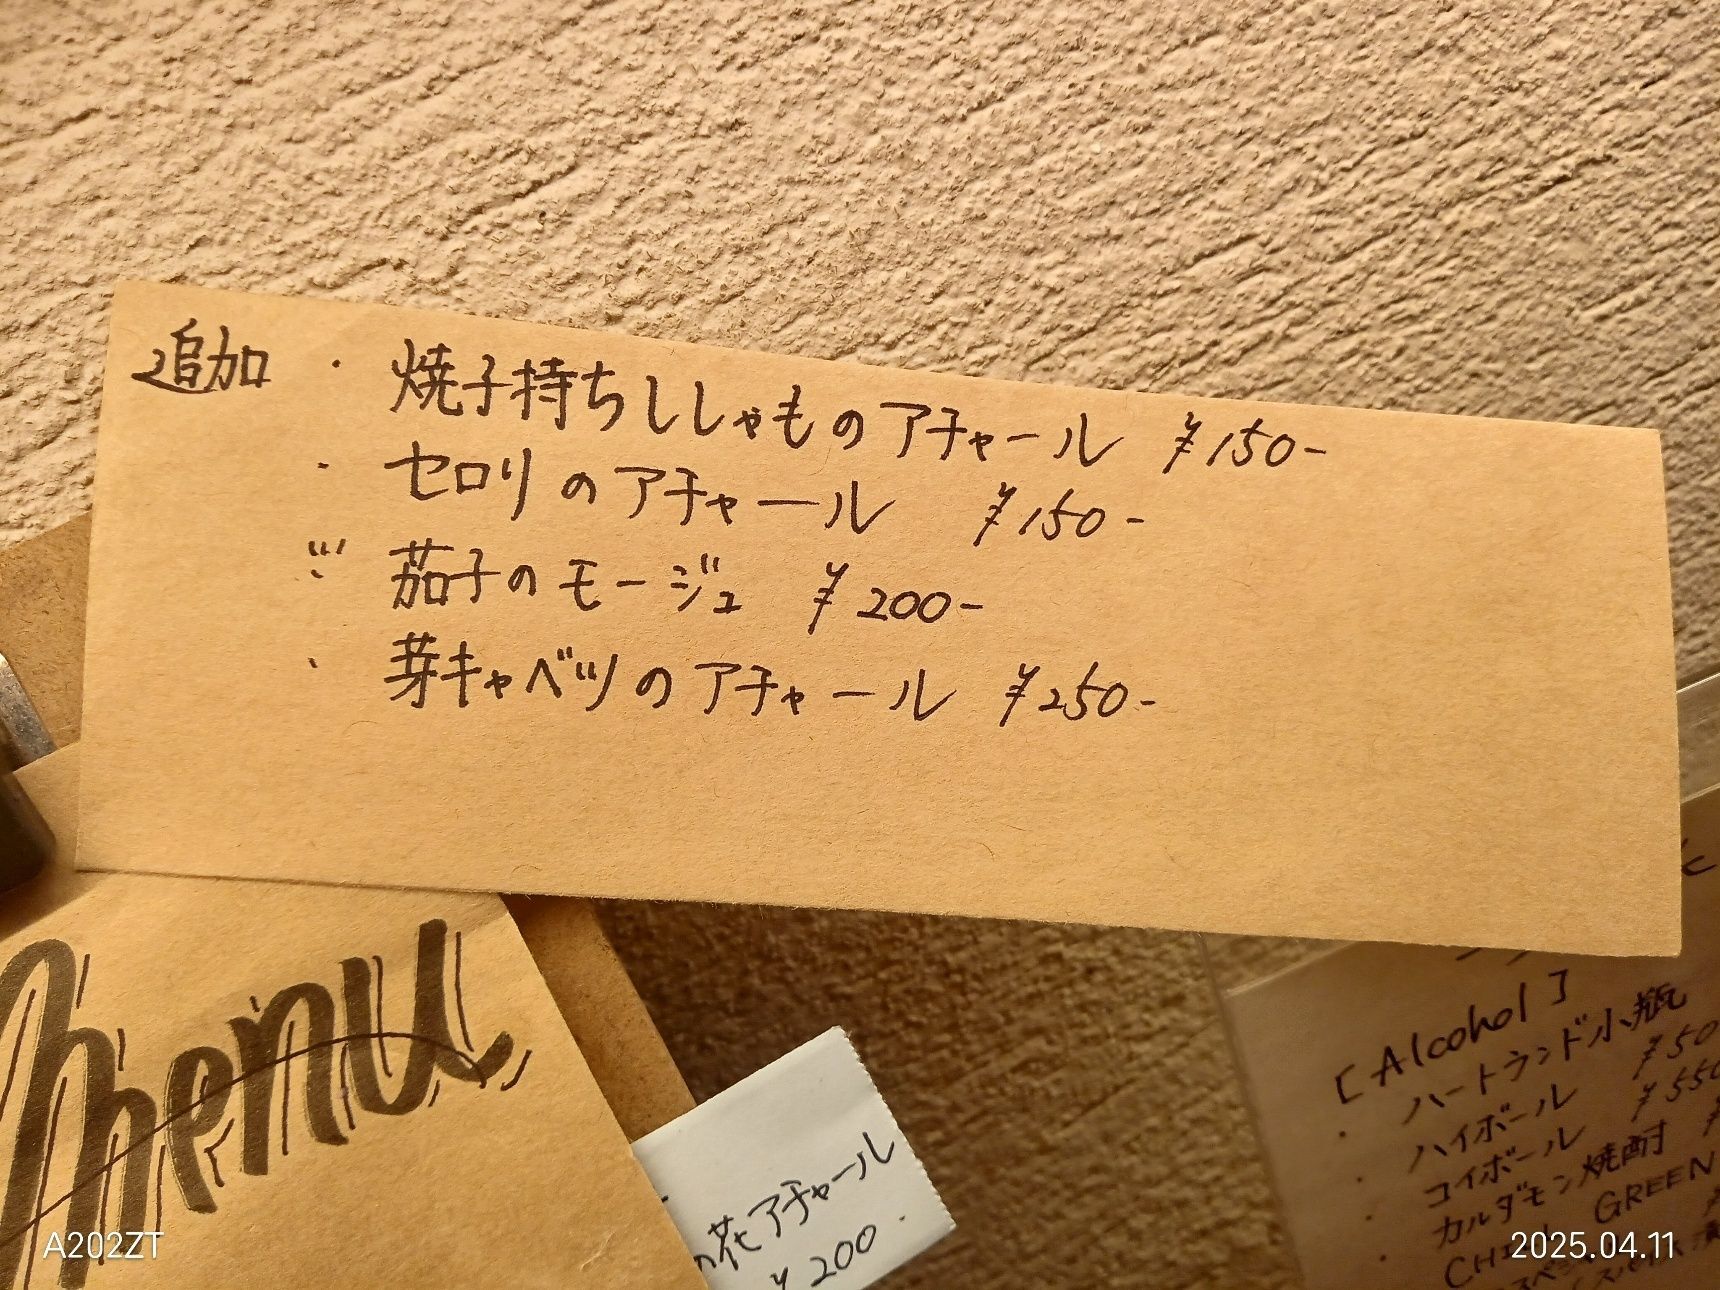 追加 ・ 焼子持ちししゃものアチャール ¥150-
・ セロリのアチャール ¥150-
・ 茄子のモージュ ¥200-
・ 芽キャベツのアチャール ¥250-
menu
の花アチャール
¥200.
[Alcohol]
・ハートランド小瓶
・ハイボール ¥50
・コイボール ¥550
・カルダモン焼酎
GREEN
A202ZT
2025.04.11